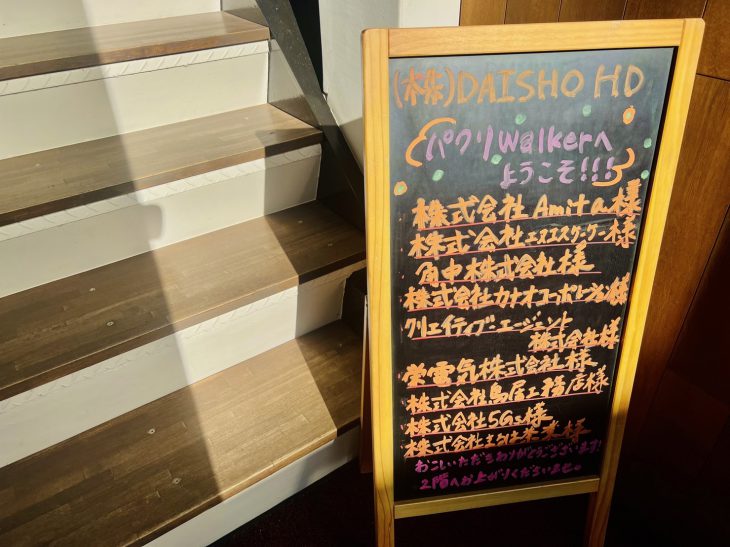 (株)DAISHO HD
パクリWalkerへ
ようこそ!!!
株式会社Amita様
株式会社エヌエスケーケー様
角中株式会社様
株式会社カナオコーポレーション様
クリエイティブ・エージェント
株式会社様
栄電気株式会社様
株式会社鳥屋工務店様
株式会社5Gs様
株式会社 様
おこしいただきありがとうございます!
2階へお上がりくださいませ。